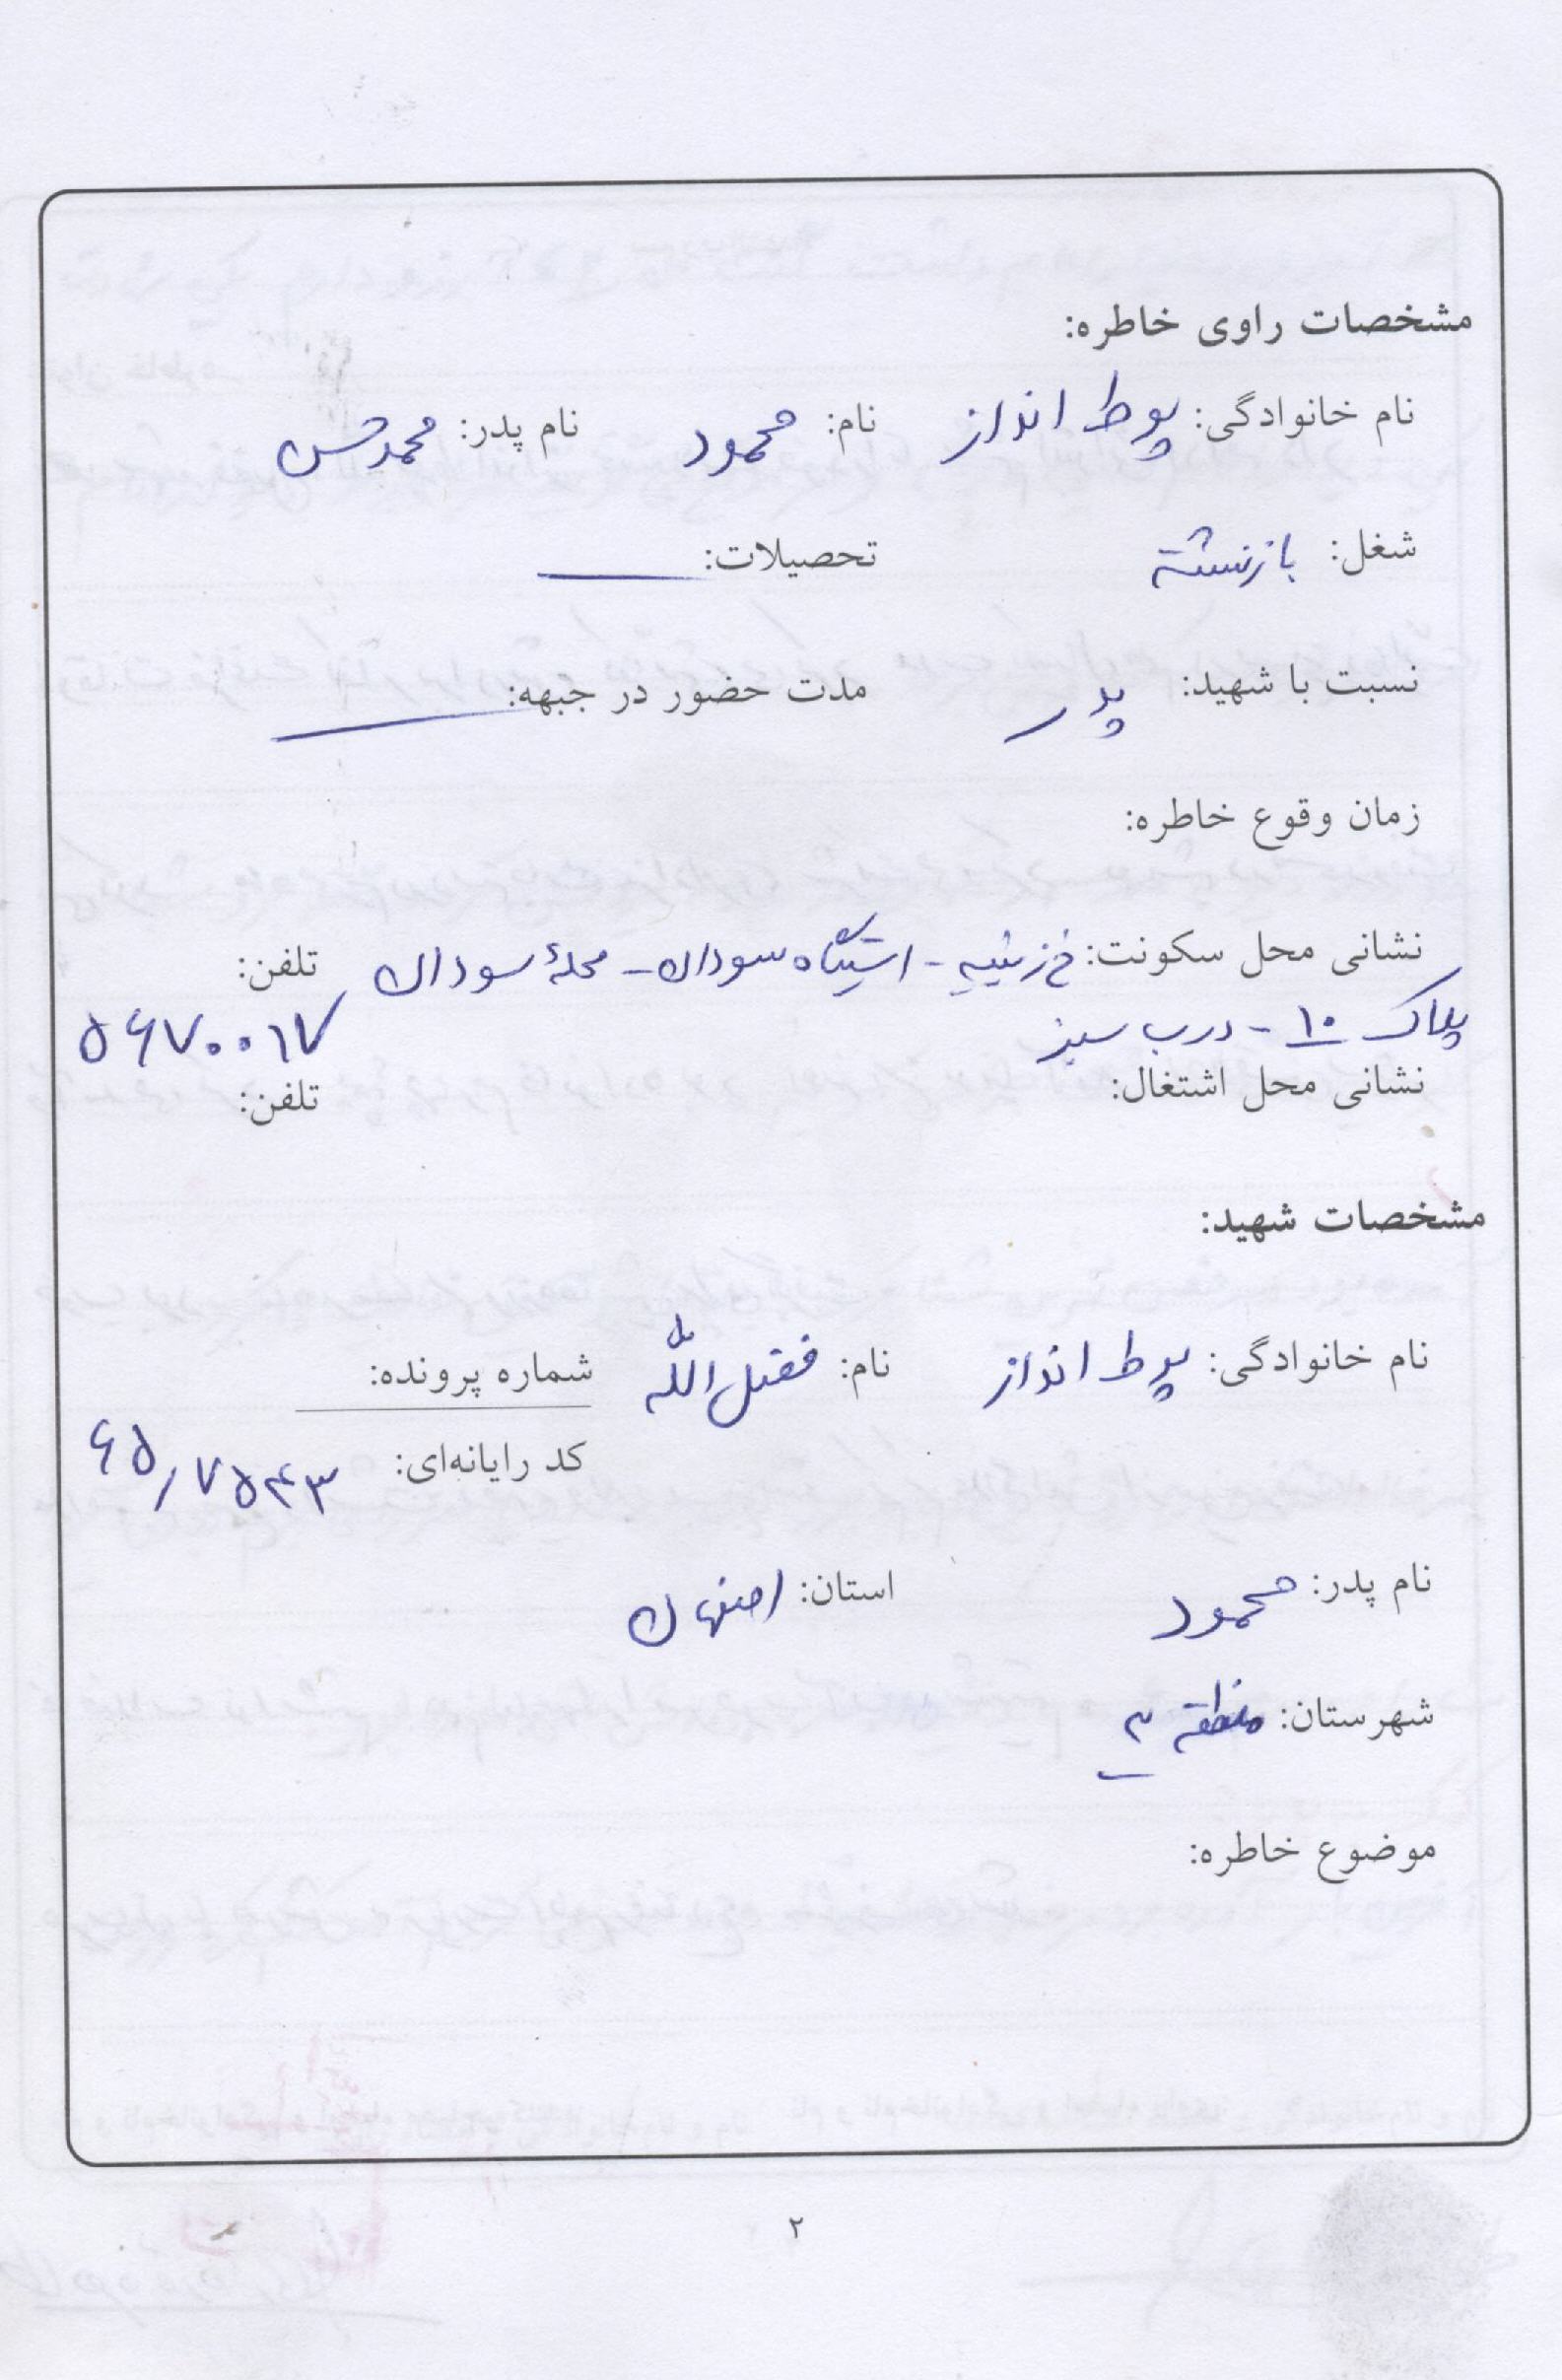 مشخصات راوی خاطره:
نام خانوادگی: پوط انداز نام: محمود نام پدر: محمدحسن
شغل: بازنشسته تحصیلات:
نسبت با شهید: پدر مدت حضور در جبهه:
زمان وقوع خاطره:
نشانی محل سکونت: خ زینبیه - ایستگاه سودان - محلهٔ سودان تلفن:
پلاک ۱۰ - درب سبز ۵۶۷۰۰۱۷
نشانی محل اشتغال: تلفن:
مشخصات شهید:
نام خانوادگی: پوط انداز نام: فضل الله شماره پرونده:
کد رایانه‌ای: ۶۵/۷۵۴۳
نام پدر: محمود استان: اصفهان
شهرستان: منطقه
موضوع خاطره:
۲